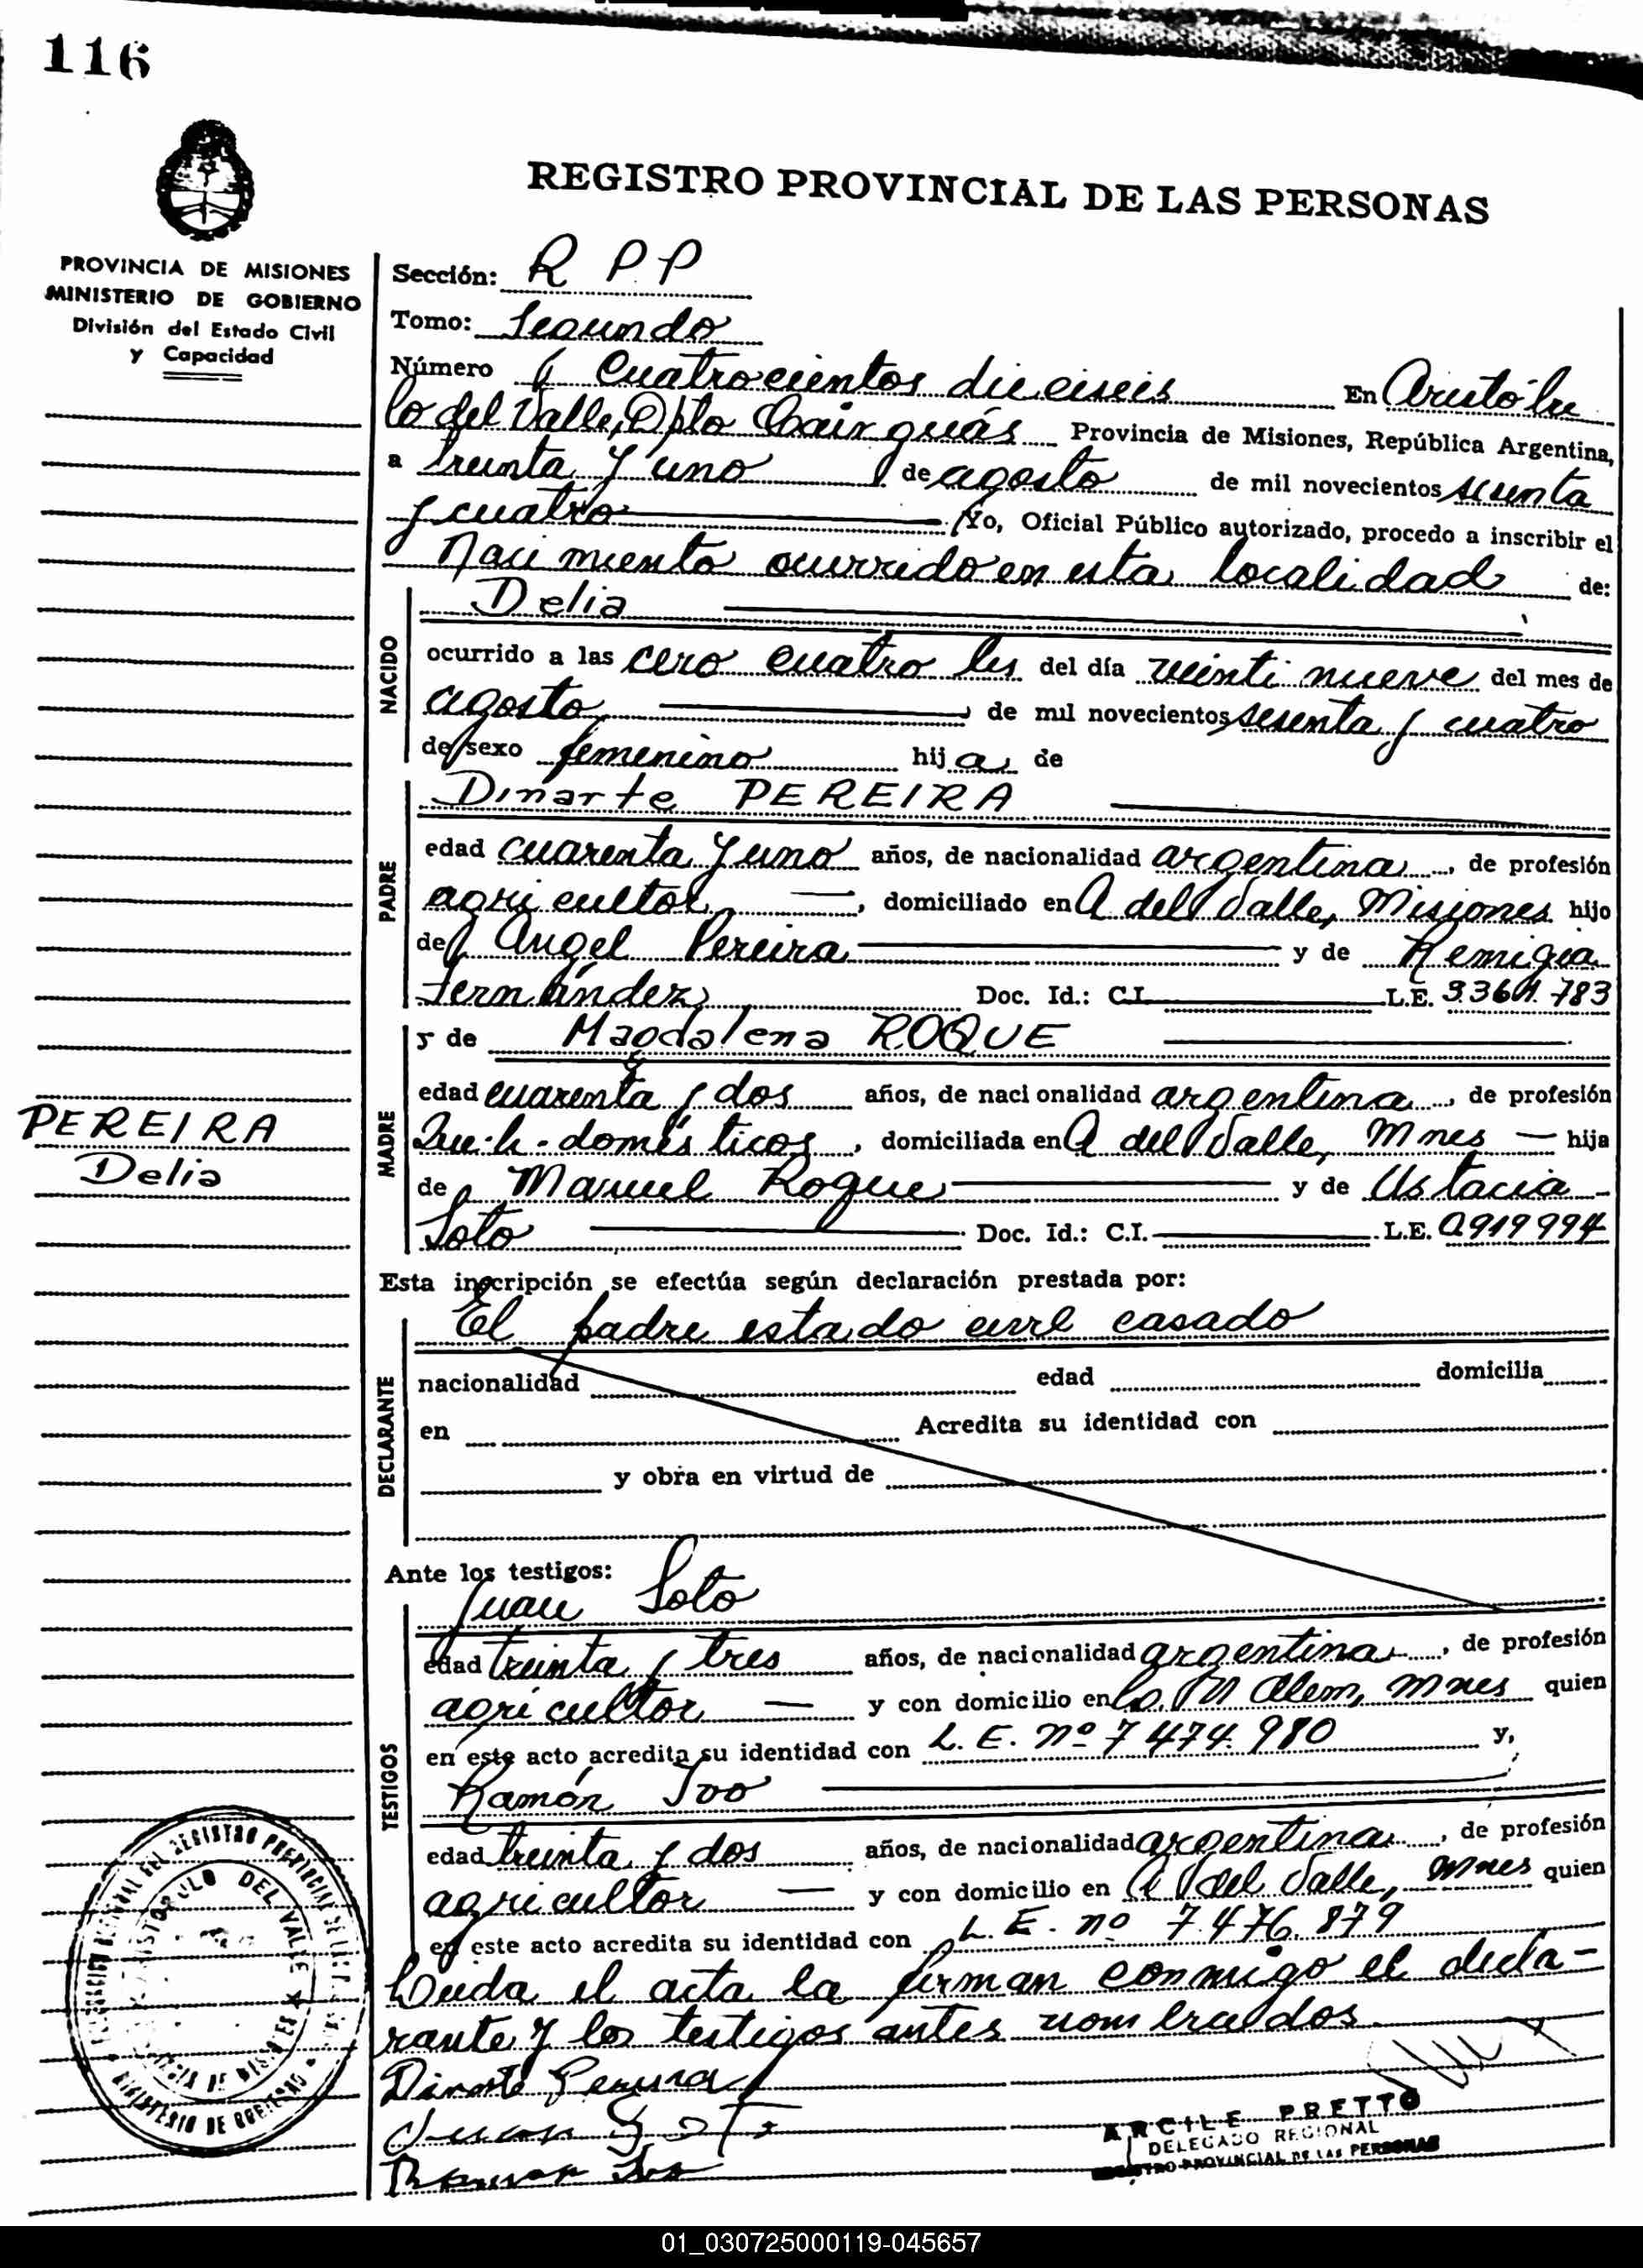 116
REGISTRO PROVINCIAL DE LAS PERSONAS
PROVINCIA DE MISIONES
MINISTERIO DE GOBIERNO
División del Estado Civil
y Capacidad
Sección: R P P
Tomo: Segundo
Número cuatrocientos dieciseis En Aristóbu
lo del Valle, Dpto Cainguás Provincia de Misiones, República Argentina,
a treinta y uno de agosto de mil novecientos sesenta
y cuatro Yo, Oficial Público autorizado, procedo a inscribir el
Nacimiento ocurrido en esta localidad de:
NACIDO
Delia
ocurrido a las cero cuatro hs del día veinti nueve del mes de
agosto de mil novecientos sesenta y cuatro
de sexo femenino hija de
PADRE
Dinarte PEREIRA
edad cuarenta y uno años, de nacionalidad argentina, de profesión
agricultor, domiciliado en A del Valle, Misiones hijo
de Angel Pereira y de Remigia
Fernández Doc. Id.: C.I. L.E. 3.361.783
MADRE
y de Magdalena ROQUE
edad cuarenta y dos años, de nacionalidad argentina, de profesión
Que-h-domésticos, domiciliada en A del Valle, Mnes — hija
de Manuel Roque y de Ustacia
Soto Doc. Id.: C.I. L.E. 0919994
PEREIRA
Delia
Esta inscripción se efectúa según declaración prestada por:
DECLARANTE
El padre estado civil casado
nacionalidad edad domicilia
en Acredita su identidad con
y obra en virtud de
Ante los testigos:
TESTIGOS
Juan Soto
edad treinta y tres años, de nacionalidad argentina, de profesión
agricultor — y con domicilio en L. N Alem, Mnes quien
en este acto acredita su identidad con L. E. nº 7 474. 980 y,
Ramón Ivo
edad treinta y dos años, de nacionalidad argentina, de profesión
agricultor — y con domicilio en A del Valle, Mnes quien
en este acto acredita su identidad con L. E. nº 7.476.879
Leida el acta la firman conmigo el decla-
rante y los testigos antes nombrados.
Dinarte Pereira
Juan Soto
Ramon Ivo
ARCILE PRETTO
DELEGADO REGIONAL
REGISTRO PROVINCIAL DE LAS PERSONAS
ARISTOBULO DEL VALLE
MINISTERIO DE GOBIERNO
01_030725000119-045657